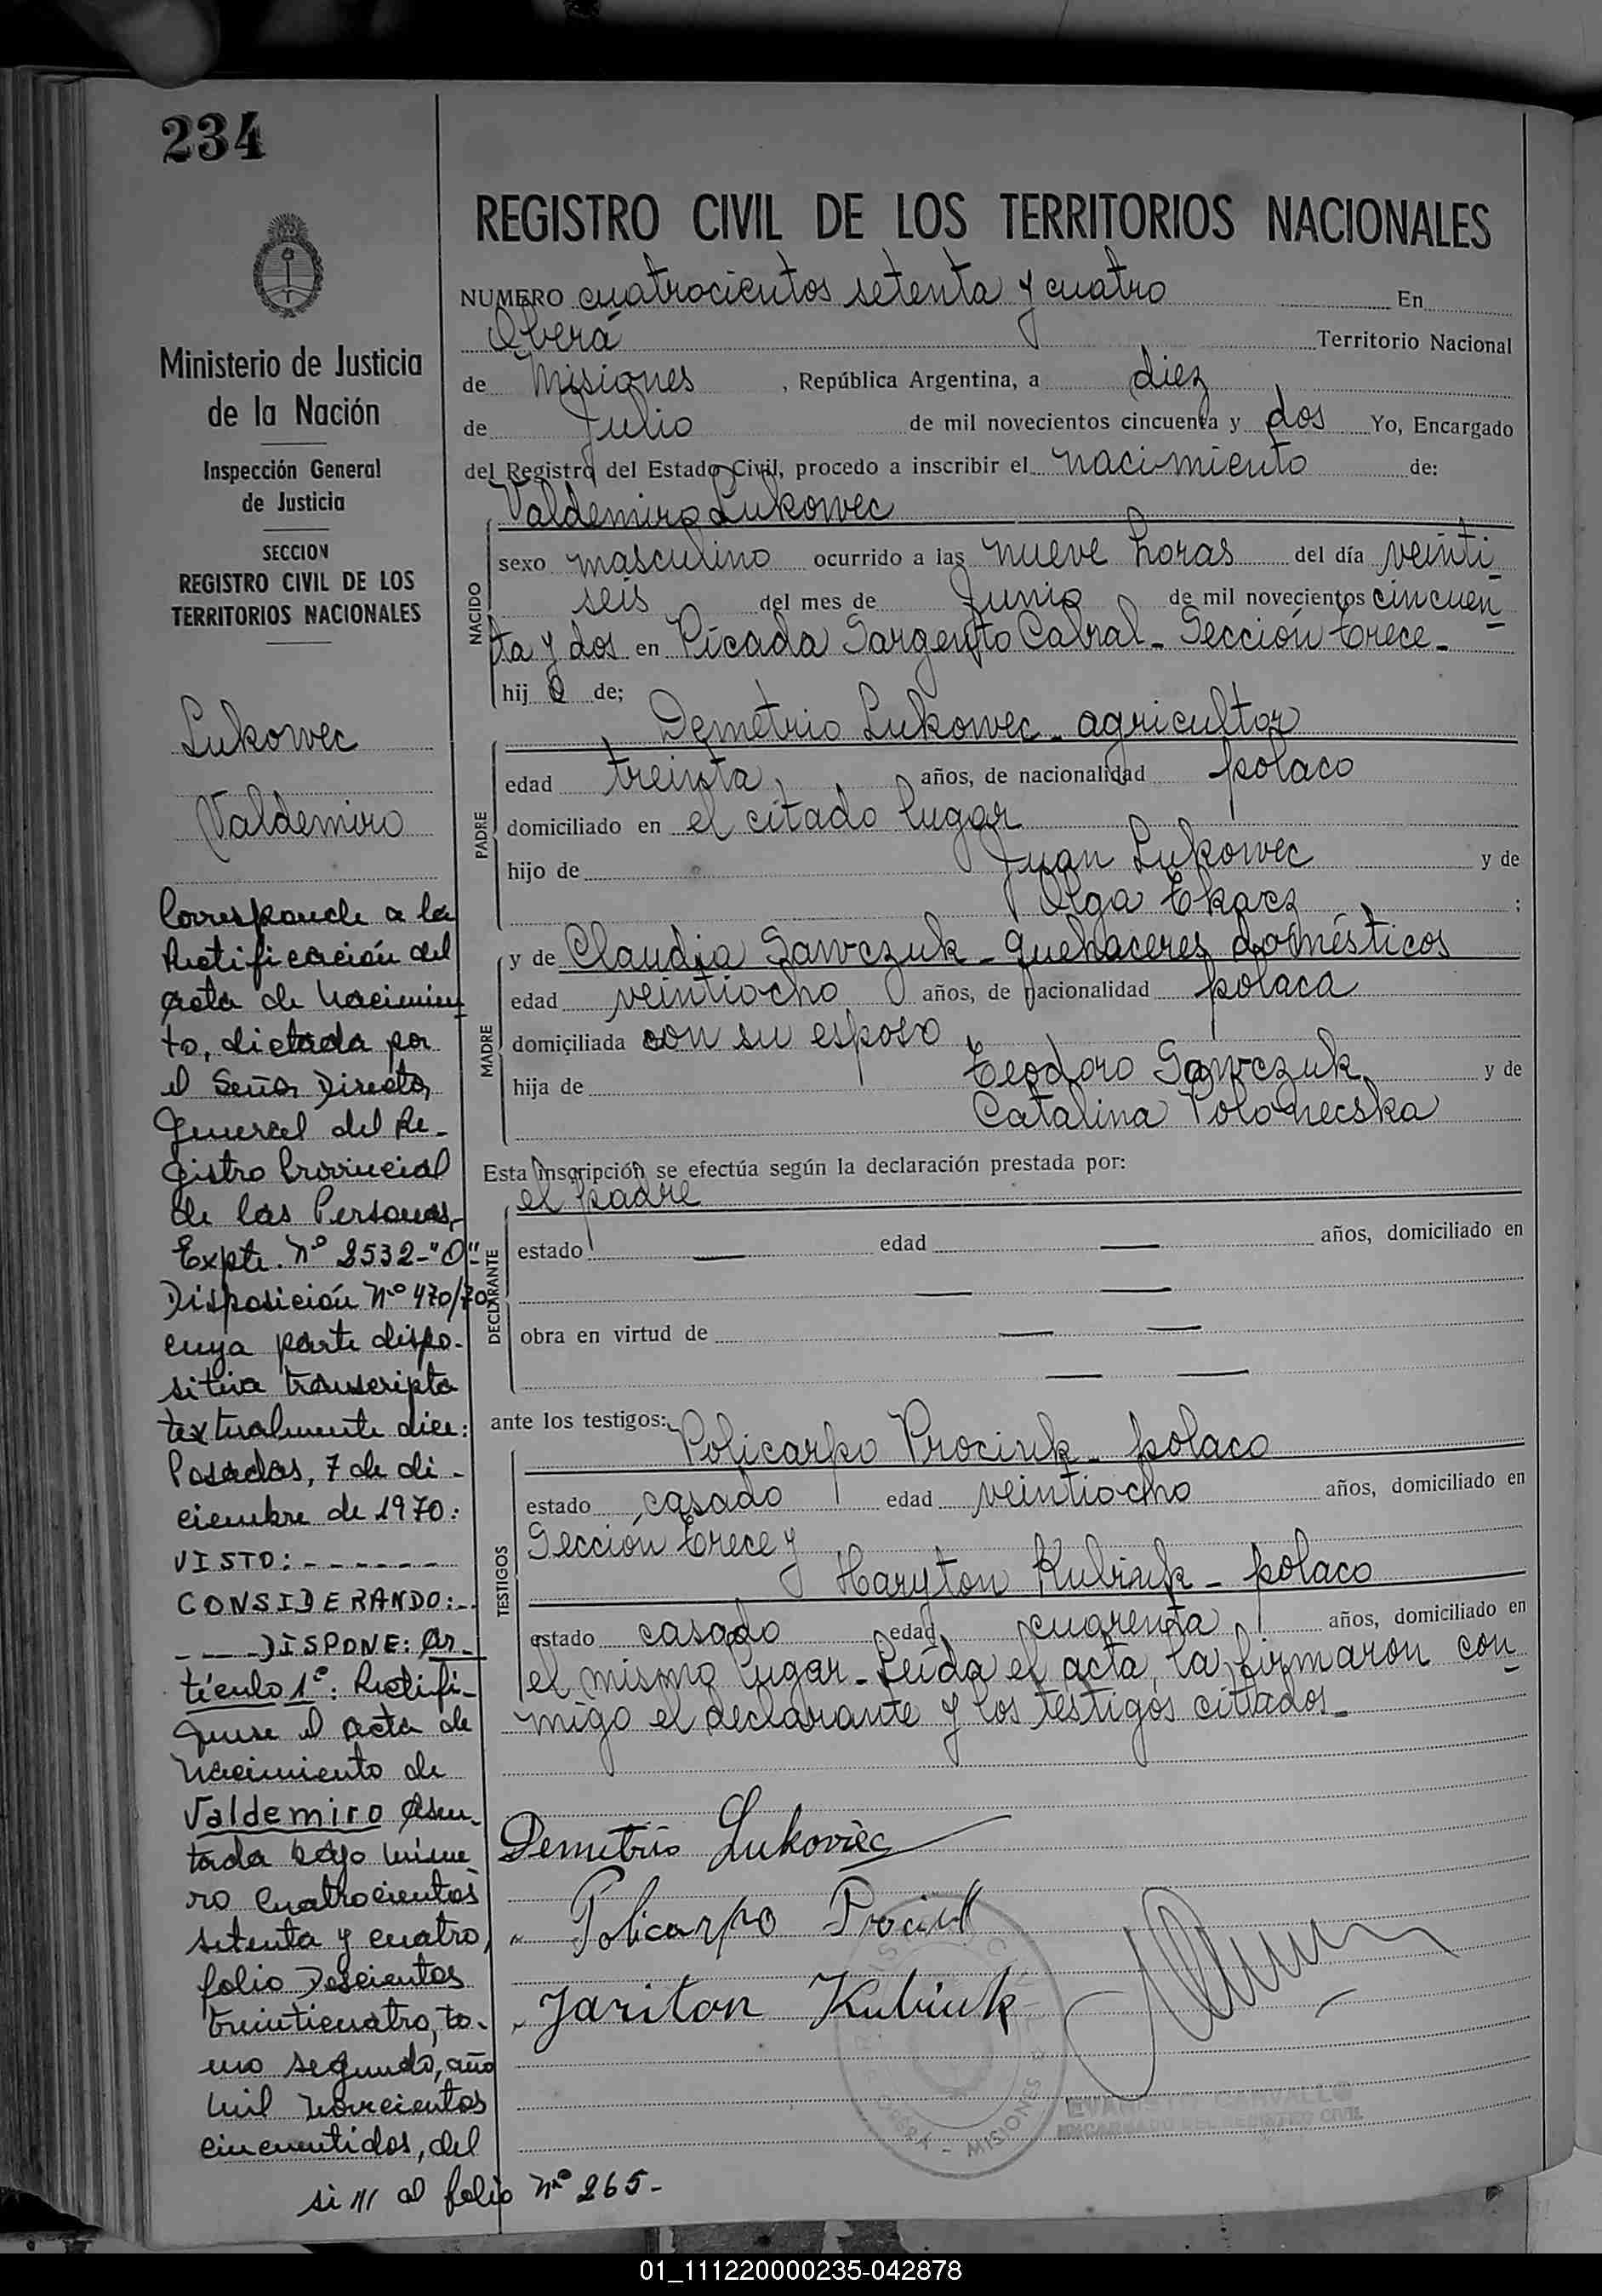 234
Ministerio de Justicia
de la Nación
Inspección General
de Justicia
SECCION
REGISTRO CIVIL DE LOS
TERRITORIOS NACIONALES
Lukowec
Valdemiro
Corresponde a la
Rectificación del
acta de nacimien
to, dictada por
el Señor Director
General del Re-
gistro Provincial
de las Personas,
Expte. Nº 2532-"O"
Disposición Nº 470/70
cuya parte dispo-
sitiva transcripta
textualmente dice:
Posadas, 7 de di-
ciembre de 1970:
VISTO: - - - - - -
CONSIDERANDO: -
- - - DISPONE: Ar-
tículo 1º: Rectifí-
quese el acta de
nacimiento de
Valdemiro asen-
tada bajo núme-
ro cuatrocientos
setenta y cuatro,
folio Doscientos
treinticuatro, to-
mo segundo, año
mil novecientos
cincuentidos, del
si /// al folio Nº 265-
REGISTRO CIVIL DE LOS TERRITORIOS NACIONALES
NUMERO cuatrocientos setenta y cuatro En
Oberá Territorio Nacional
de Misiones, República Argentina, a diez
de Julio de mil novecientos cincuenta y dos Yo, Encargado
del Registro del Estado Civil, procedo a inscribir el nacimiento de:
Valdemiro Lukowec
NACIDO
sexo masculino ocurrido a las nueve horas del día veinti-
seis del mes de Junio de mil novecientos cincuen-
ta y dos en Picada Sargento Cabral - Sección trece -
hijo de;
Demetrio Lukowec - agricultor
PADRE
edad treinta años, de nacionalidad polaco
domiciliado en el citado lugar
hijo de Juan Lukowec y de
Olga Tkacz ;
y de Claudia Sawczuk - quehaceres domésticos
MADRE
edad veintiocho años, de nacionalidad polaca
domiciliada con su esposo
hija de Teodoro Sawczuk y de
Catalina Polonecska
Esta inscripción se efectúa según la declaración prestada por:
el padre
DECLARANTE
estado — edad — años, domiciliado en
— —
obra en virtud de — —
— —
ante los testigos:
Policarpo Prociuk - polaco
TESTIGOS
estado casado edad veintiocho años, domiciliado en
Sección trece y
Haryton Kubiuk - polaco
estado casado edad cuarenta años, domiciliado en
el mismo lugar - Leída el acta, la firmaron con-
migo el declarante y los testigos citados -
Demetrio Lukowiec
Policarpo Prociuk
Jariton Kubiuk
OBERA - MISIONES
CARVALLO
ENCARGADO DEL REGISTRO CIVIL
01_111220000235-042878